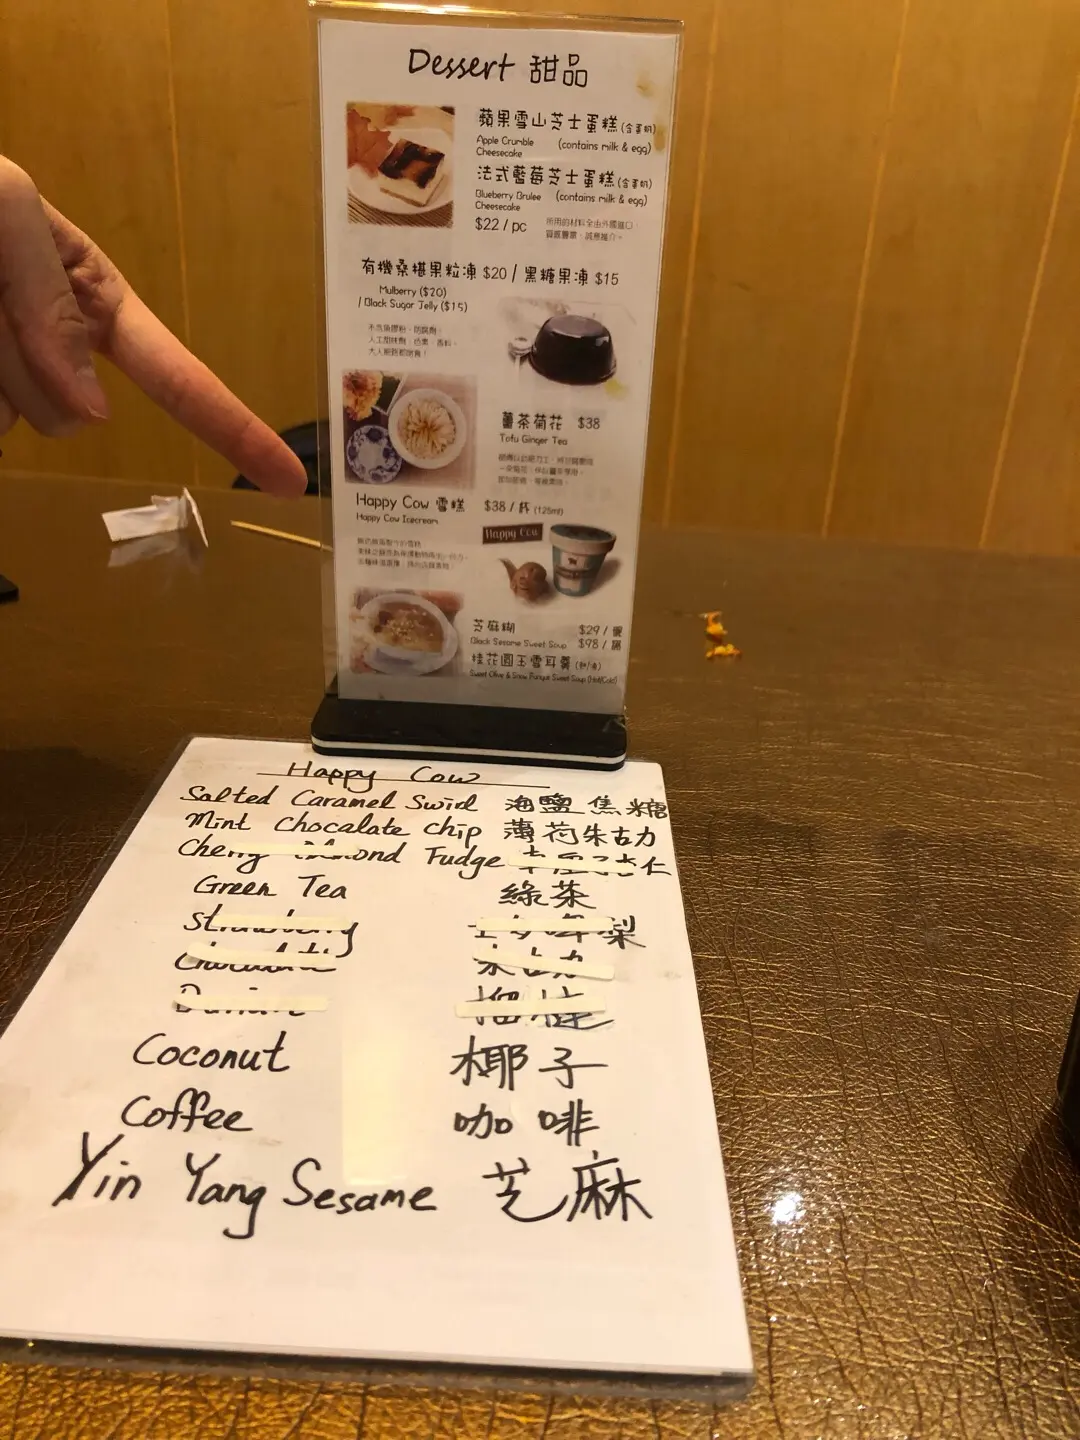 Dessert 甜品
蘋果雪山芝士蛋糕(含蛋奶)
Apple Crumble (contains milk & egg)
Cheesecake
法式藍莓芝士蛋糕(含蛋奶)
Blueberry Brulee (contains milk & egg)
Cheesecake
$22 / pc
所用的材料全由外國進口
有機桑椹果粒凍 $20 / 黑糖果凍 $15
Mulberry ($20)
/ Black Sugar Jelly ($15)
薑茶菊花 $38
Tofu Ginger Tea
Happy Cow 雪糕 $38 / 杯 (125ml)
Happy Cow Icecream
Happy Cow
芝麻糊 $29 /
Black Sesame Sweet Soup $98 /
桂花圓玉雪耳羹 (熱/凍)
Sweet Olive & Snow Fungus Sweet Soup (Hot/Cold)
Happy Cow
Salted Caramel Swirl 海鹽焦糖
Mint Chocalate Chip 薄荷朱古力
Cherry Almond Fudge 仁
Green Tea 綠茶
Strawberry 士多啤梨
Chocolate 朱古力
Durian 榴槤
Coconut 椰子
Coffee 咖啡
Yin Yang Sesame 芝麻